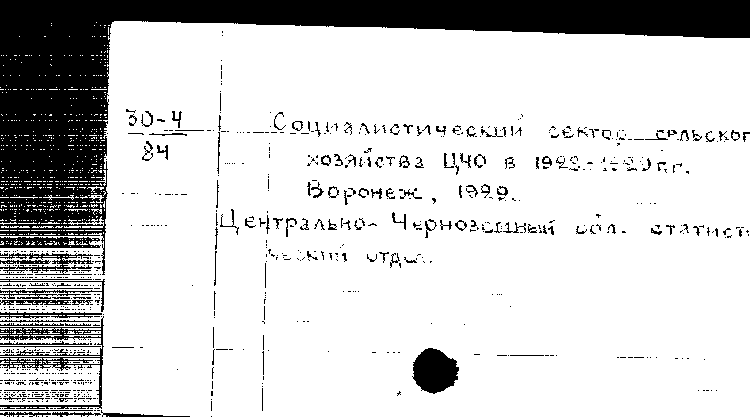 30-4
84
Социалистический сектор сельског
хозяйства ЦЧО в 1928-1929 г.г.
Воронеж, 1929.
Центрально-Черноземный обл. статисти
ческий отдел.